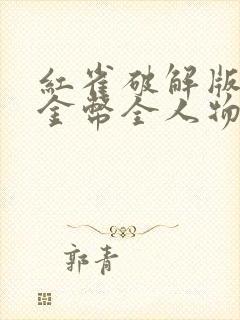 紅雀破解版
金幣全人物
郭青